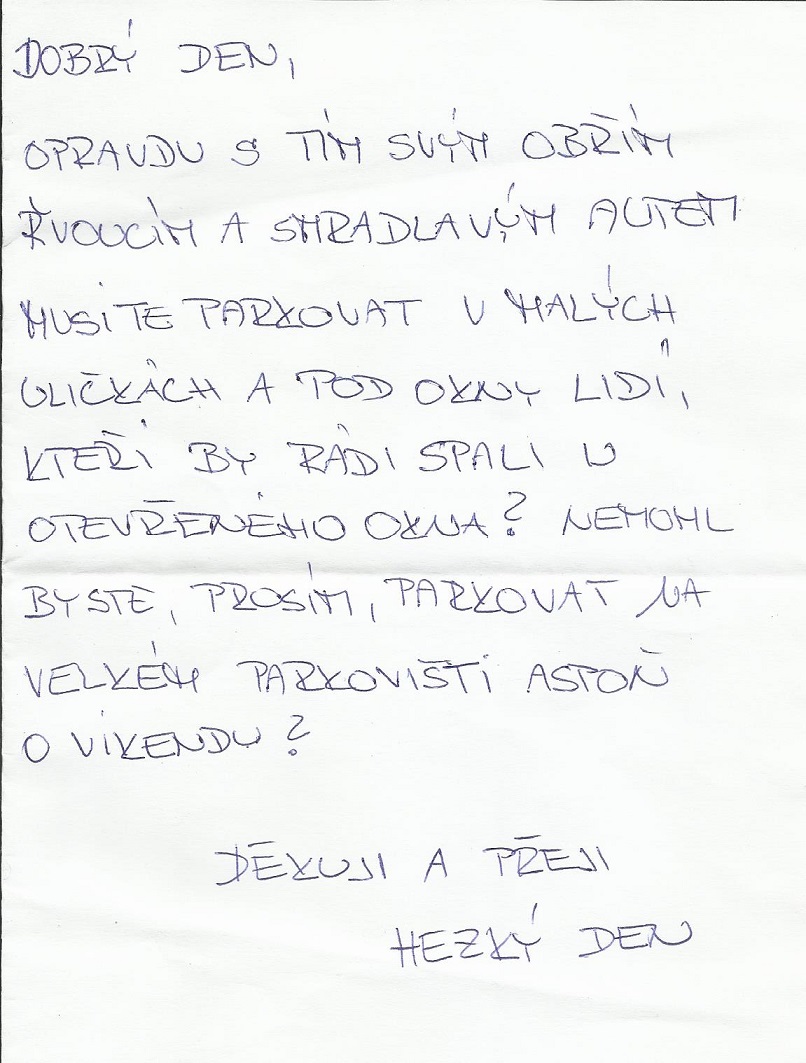 DOBRÝ DEN,
OPRAVDU S TÍM SVÝM OBŘÍM
ŘVOUCÍM A SMRADLAVÝM AUTEM
MUSÍTE PARKOVAT V MALÝCH
ULIČKÁCH A POD OKNY LIDÍ,
KTEŘÍ BY RÁDI SPALI U
OTEVŘENÉHO OKNA? NEMOHL
BYSTE, PROSÍM, PARKOVAT NA
VELKÉM PARKOVIŠTI ASPOŇ
O VÍKENDU?
DĚKUJI A PŘEJI
HEZKÝ DEN